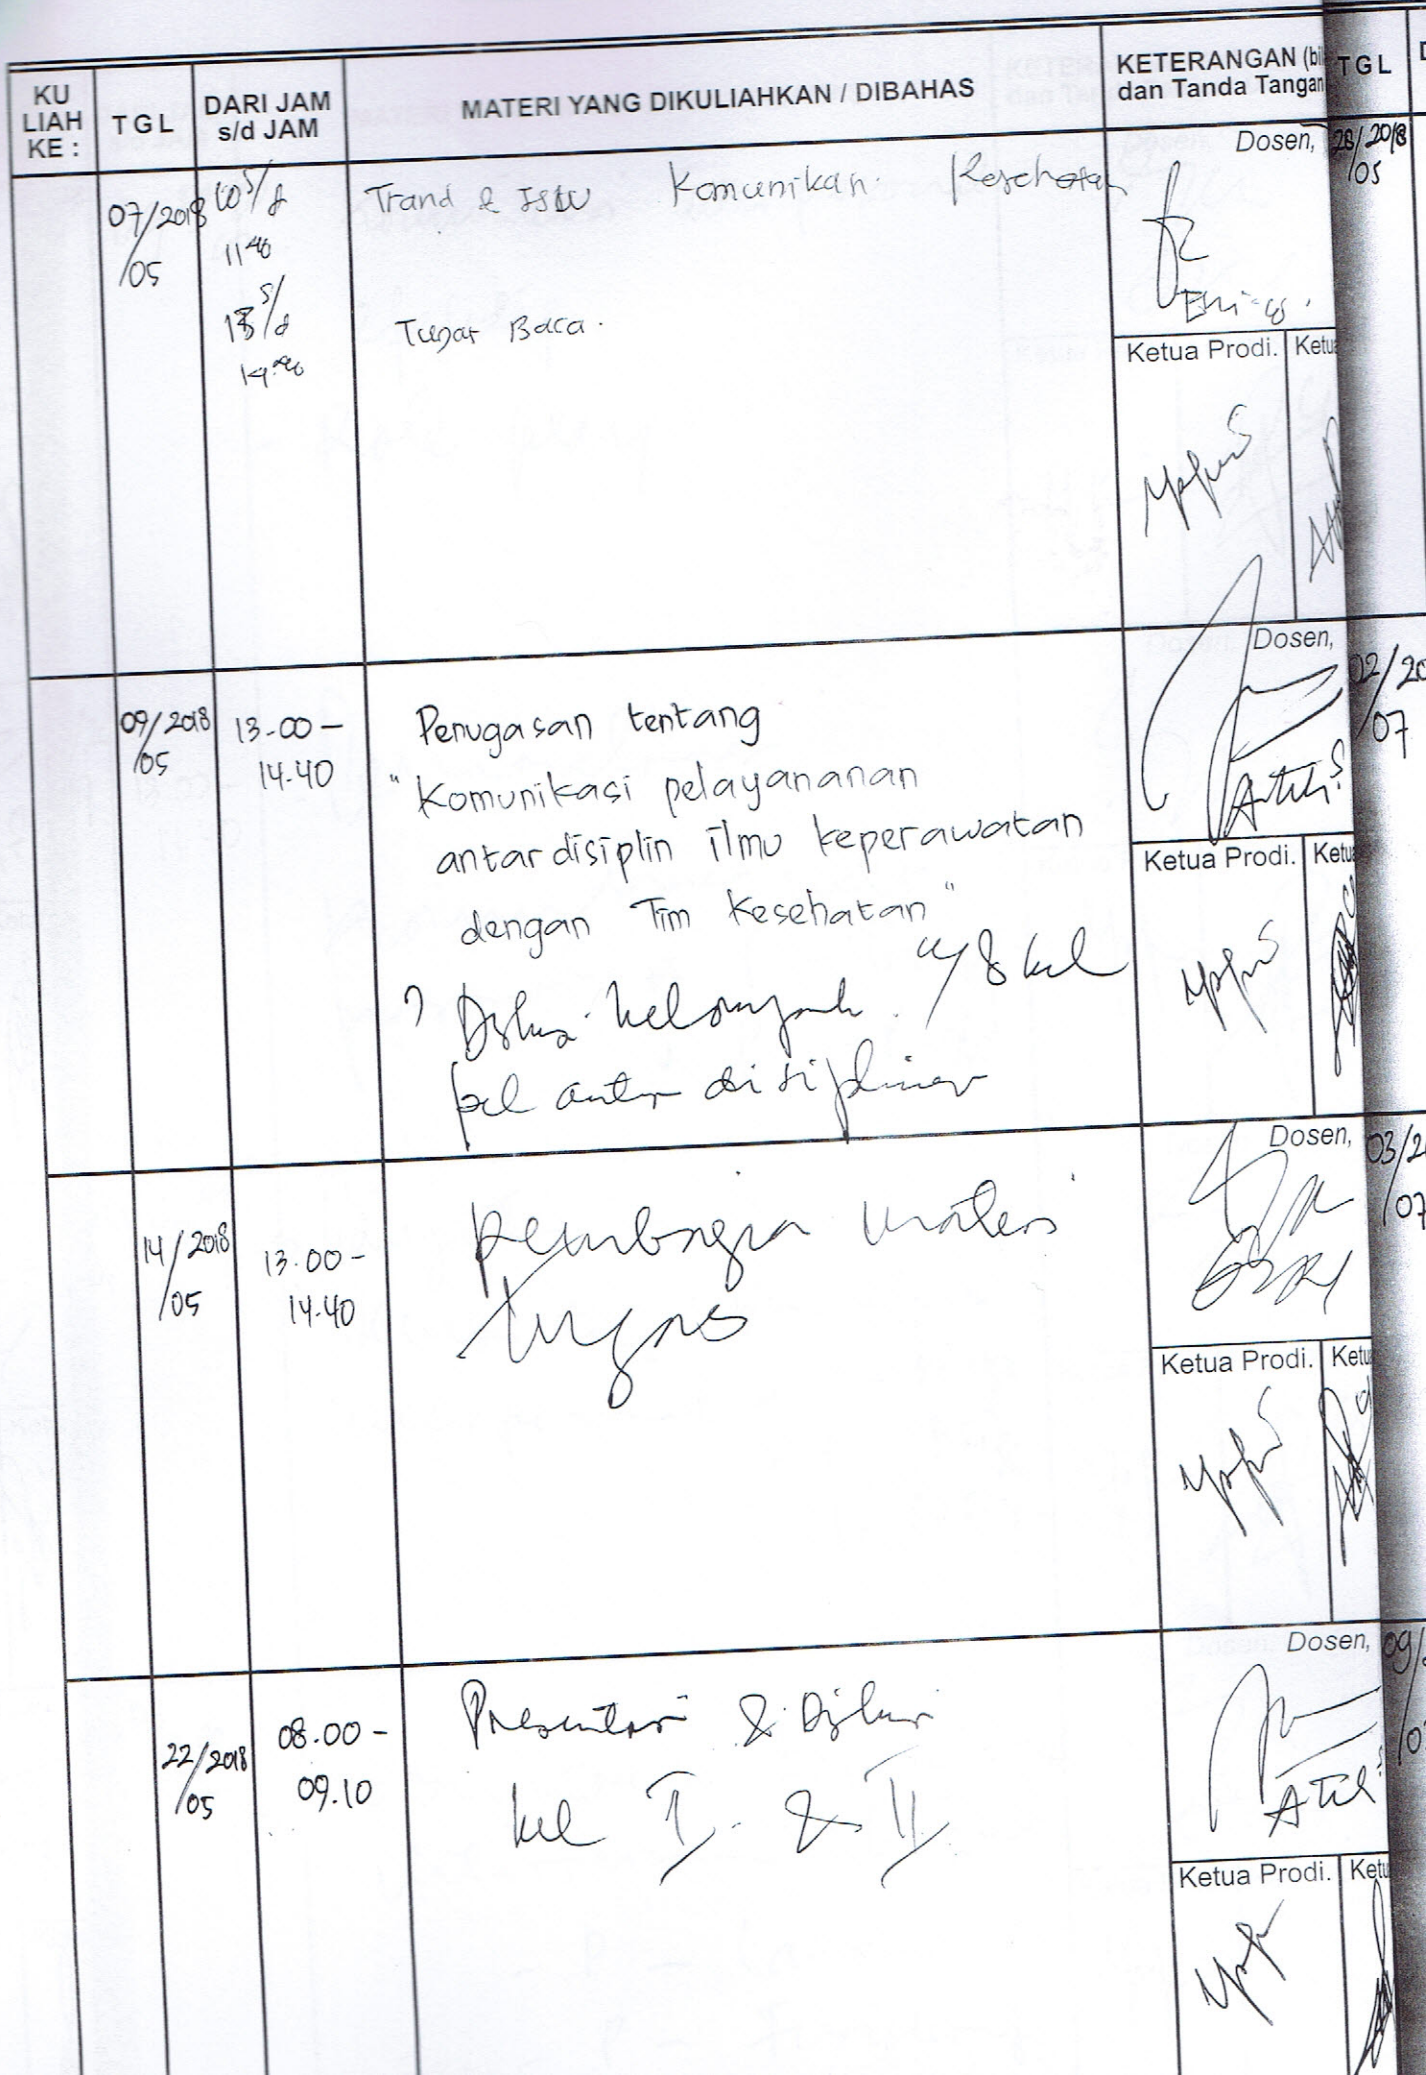 KU
LIAH
KE :
TGL
DARI JAM
s/d JAM
MATERI YANG DIKULIAHKAN / DIBAHAS
KETERANGAN (bi
dan Tanda Tangan
TGL
07/2018
/05
10 s/d
11 40
13 s/d
14 40
Trand & Issu Komunikan Kesehatan
Tugas Baca.
Dosen,
Ketua Prodi.
Ketu
28/2018
/05
09/2018
/05
13.00 -
14.40
Penugasan tentang
"Komunikasi pelayananan
antar disiplin ilmu keperawatan
dengan Tim Kesehatan"
8 kel
Dosen,
Ketua Prodi.
Ketu
02/20
/07
14/2018
/05
13.00 -
14.40
Pembagian materi
tugas
Dosen,
Ketua Prodi.
Ketu
03/2
/07
22/2018
/05
08.00 -
09.10
Presentasi & Diskusi
kel I & II
Dosen,
Atik
Ketua Prodi.
Ketu
09/